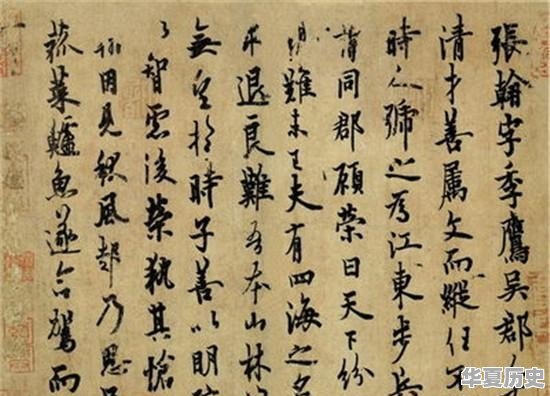 張翰字季鷹吳郡人
清才善屬文而縱任不
時人號之為江東步兵
謂同郡顧榮曰天下紛
難未已夫有四海之名
求退良難吾本山林間
無望於時子善以明防
以智慮後榮執其愴
翰因見秋風起乃思
菰菜鱸魚遂命駕而
华夏历史